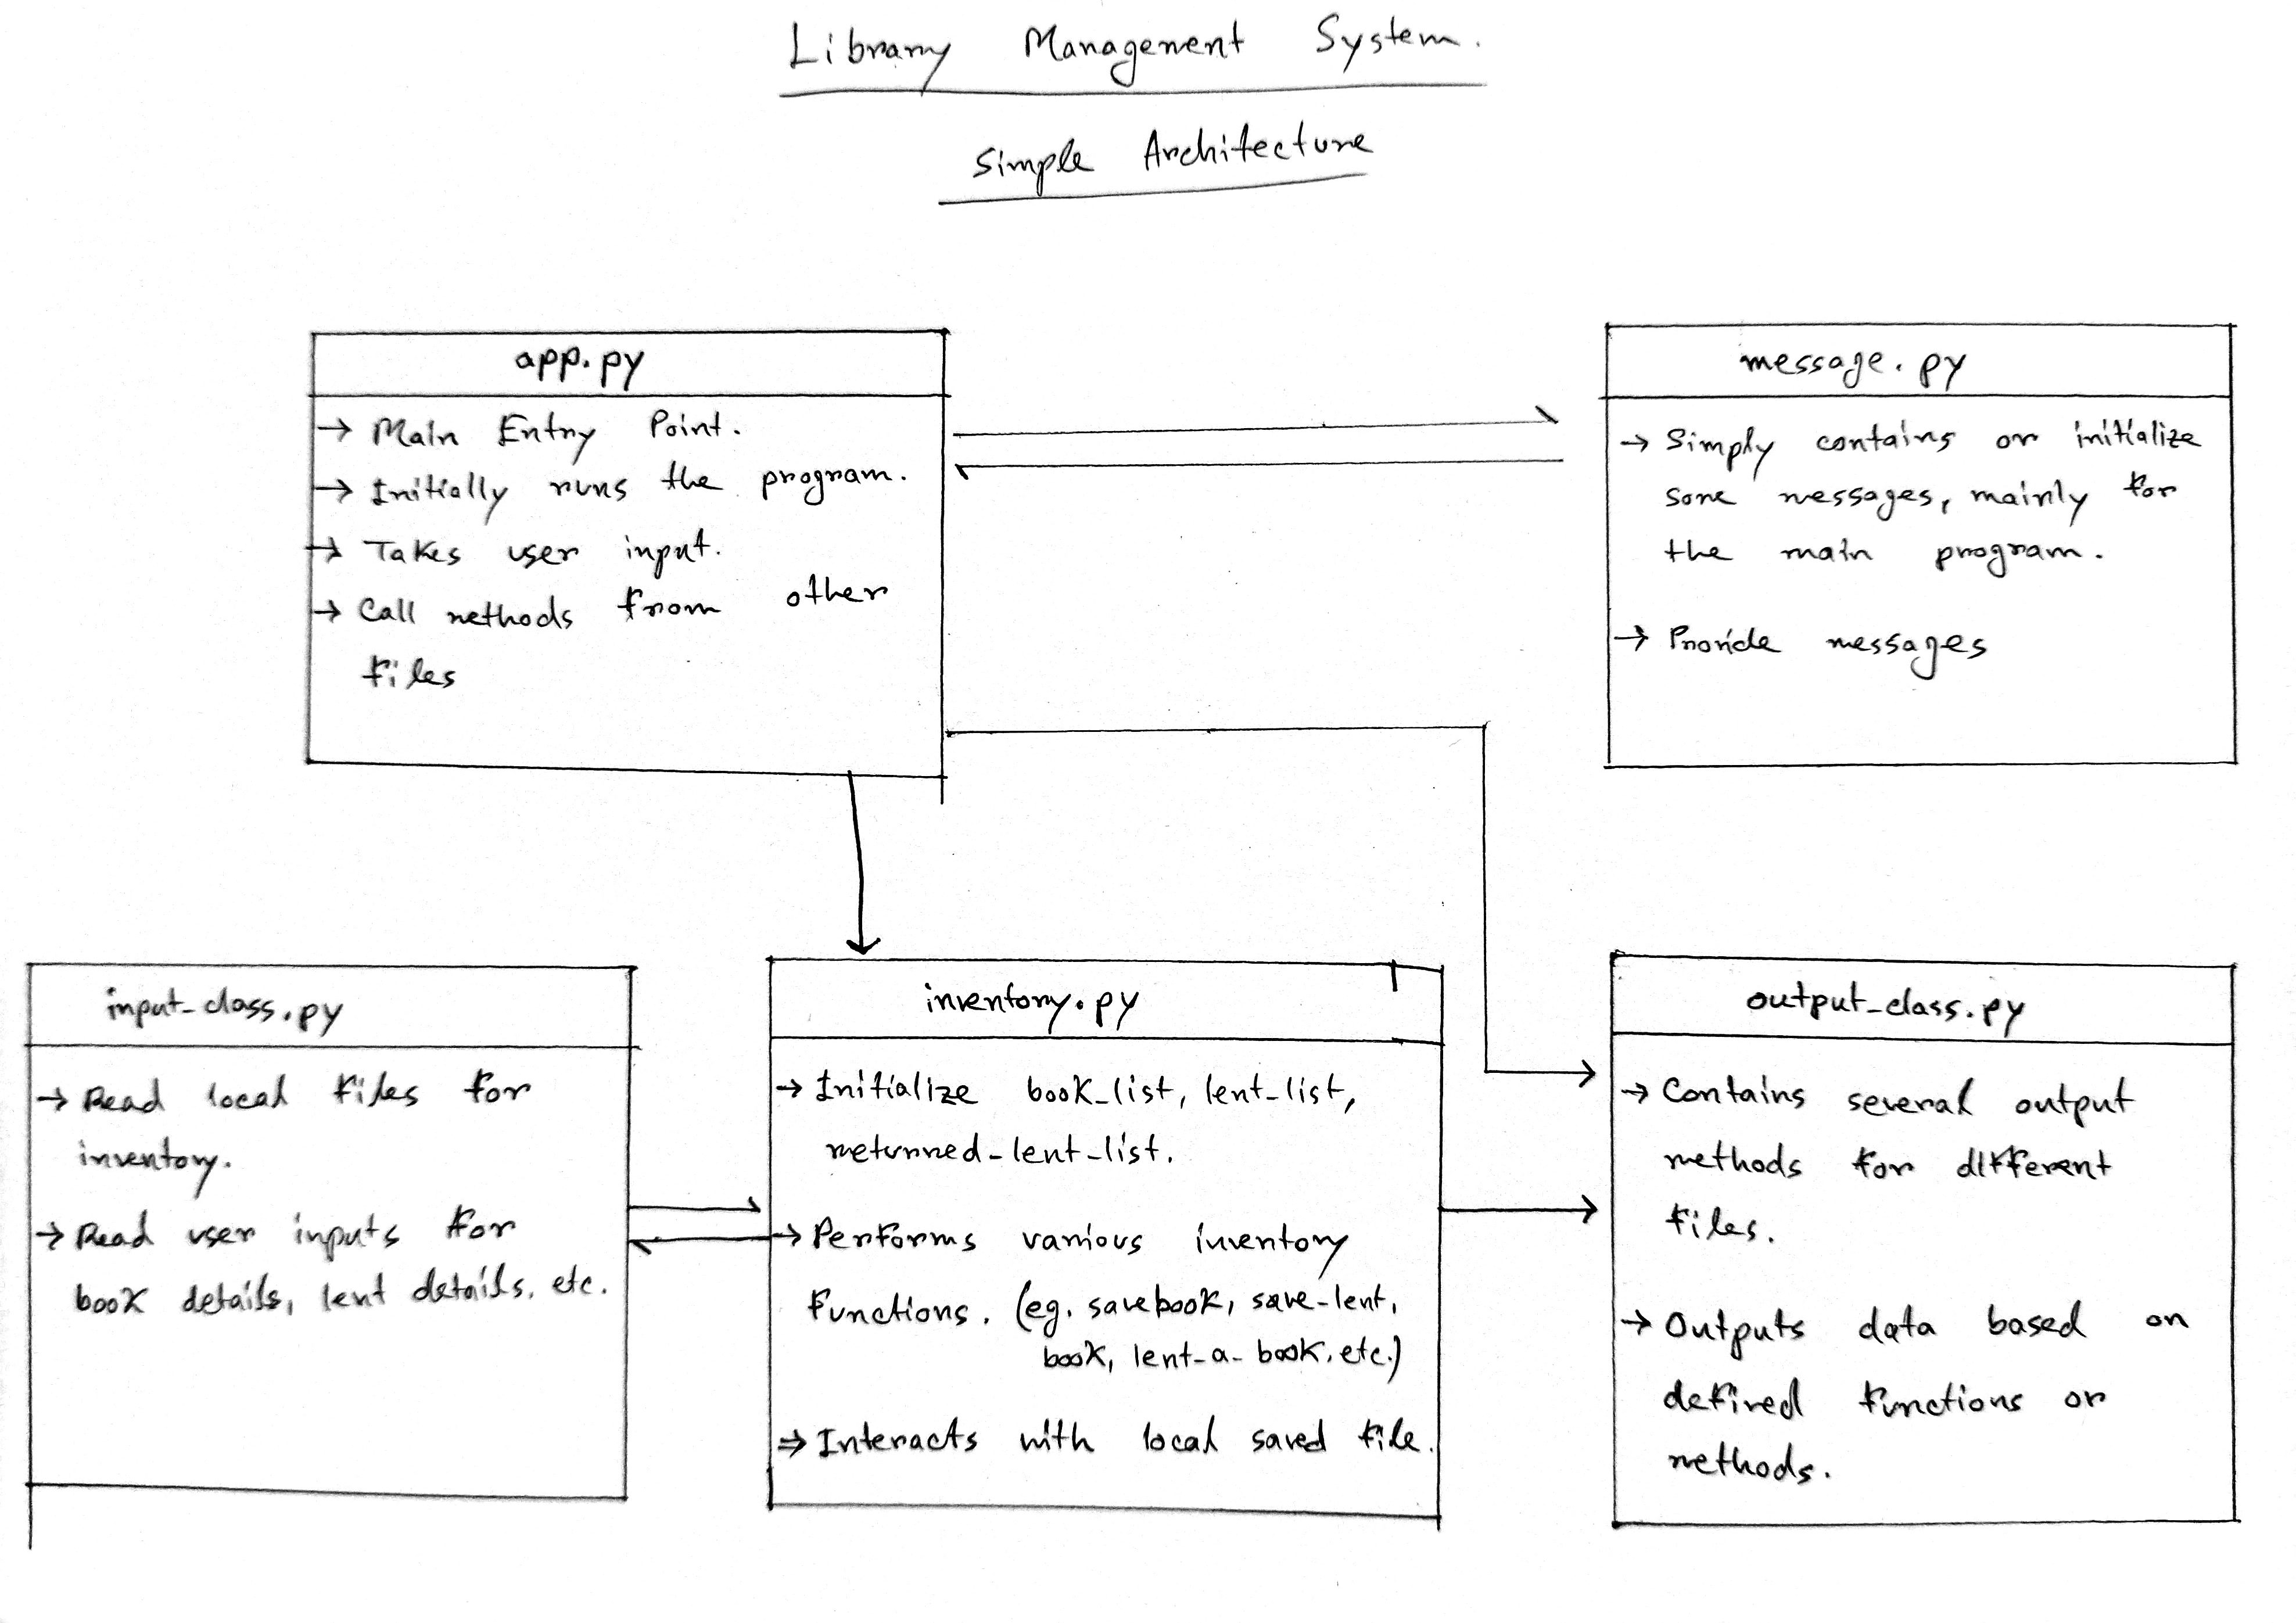 Library Management System.
Simple Architecture
app.py
→ Main Entry Point.
→ Initially runs the program.
→ Takes user input.
→ Call methods from other
files
message.py
→ Simply contains or initialize
some messages, mainly for
the main program.
→ Provide messages
input_class.py
→ Read local files for
inventory.
→ Read user inputs for
book details, lent details, etc.
inventory.py
→ Initialize book_list, lent_list,
returned_lent_list.
→ Performs various inventory
functions. (eg. savebook, save_lent,
book, lent_a_book, etc.)
→ Interacts with local saved file.
output_class.py
→ Contains several output
methods for different
files.
→ Outputs data based on
defined functions or
methods.